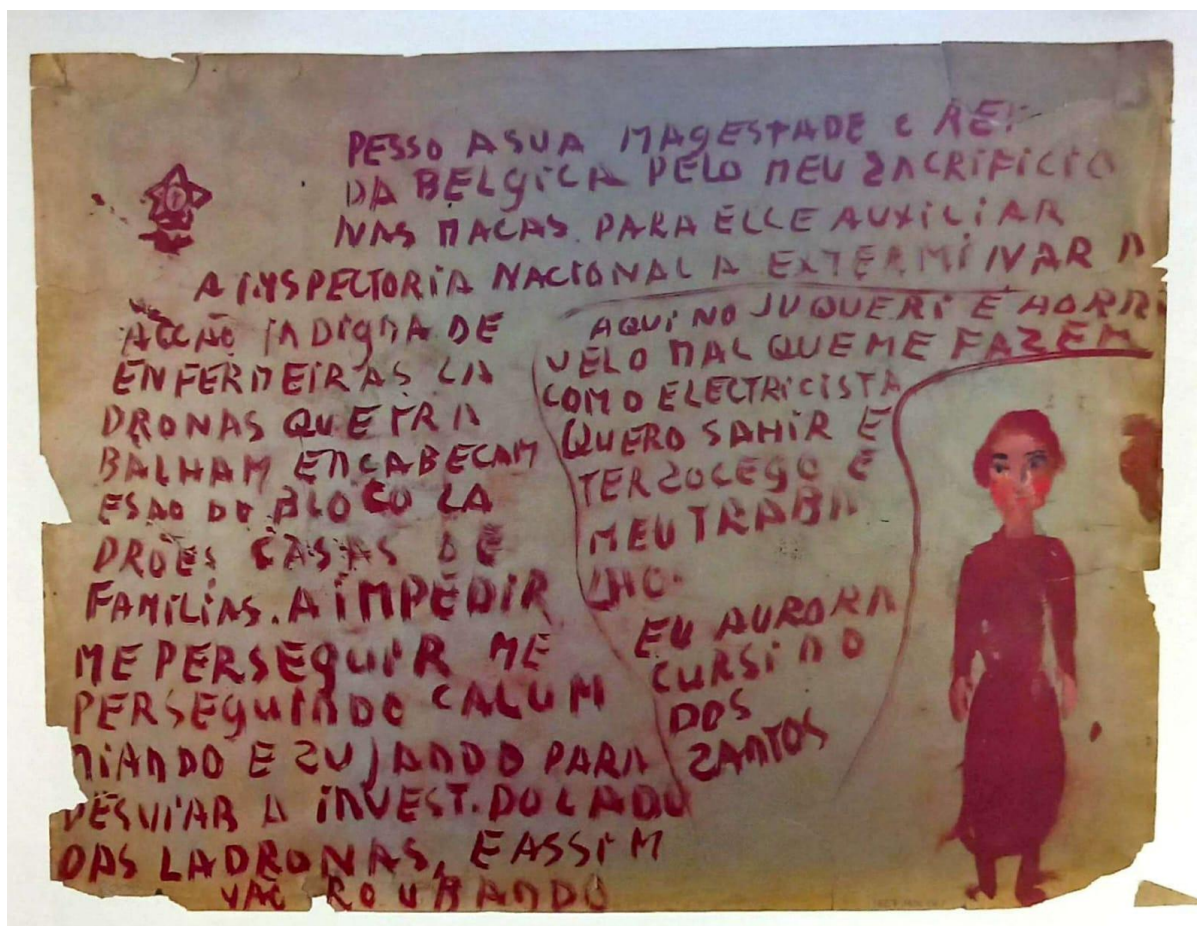 PESSO A SUA MAGESTADE E REI
DA BELGICA PELO MEU ZACRIFICIO
NAS MACAS. PARA ELLE AUXILIAR
A INSPECTORIA NACIONAL A EXTERMINAR A
ACCÃO INDIGNA DE
ENFERMEIRAS LA
DRONAS QUE TRA
BALHAM ENCABECAM
ESAO DO BLOCO LA
DRÕES CASAS DE
FAMILIAS. A IMPEDIR
ME PERSEGUIR ME
PERSEGUINDO CALUM
NIANDO E ZUJANDO PARA
DESVIAR A INVEST. DO LADO
DAS LADRONAS, E ASSIM
VAE ROUBANDO
AQUI NO JUQUERI É HORRI
VEL O MAL QUE ME FAZEM
COM O ELECTRICISTA
QUERO SAHIR E
TER ZOCEGO E
MEU TRABA
LHO.
EU AURORA
CURSINO
DOS
ZANTOS